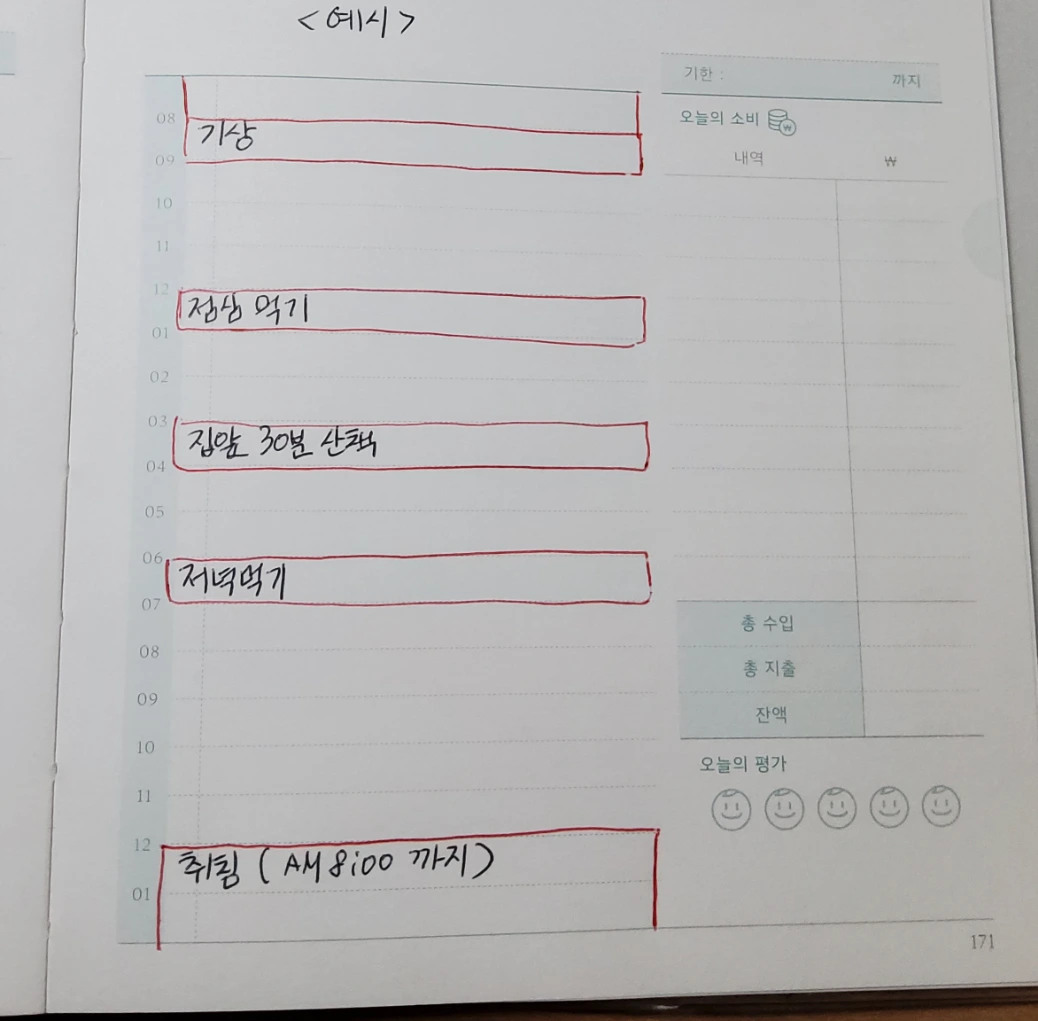 <예시>
08
기상
09
10
11
12
점심 먹기
01
02
03
집앞 30분 산책
04
05
06
저녁먹기
07
08
09
10
11
12
취침 (AM 8:00 까지)
01
기한 : 까지
오늘의 소비 ₩
내역 ₩
총 수입
총 지출
잔액
오늘의 평가
171